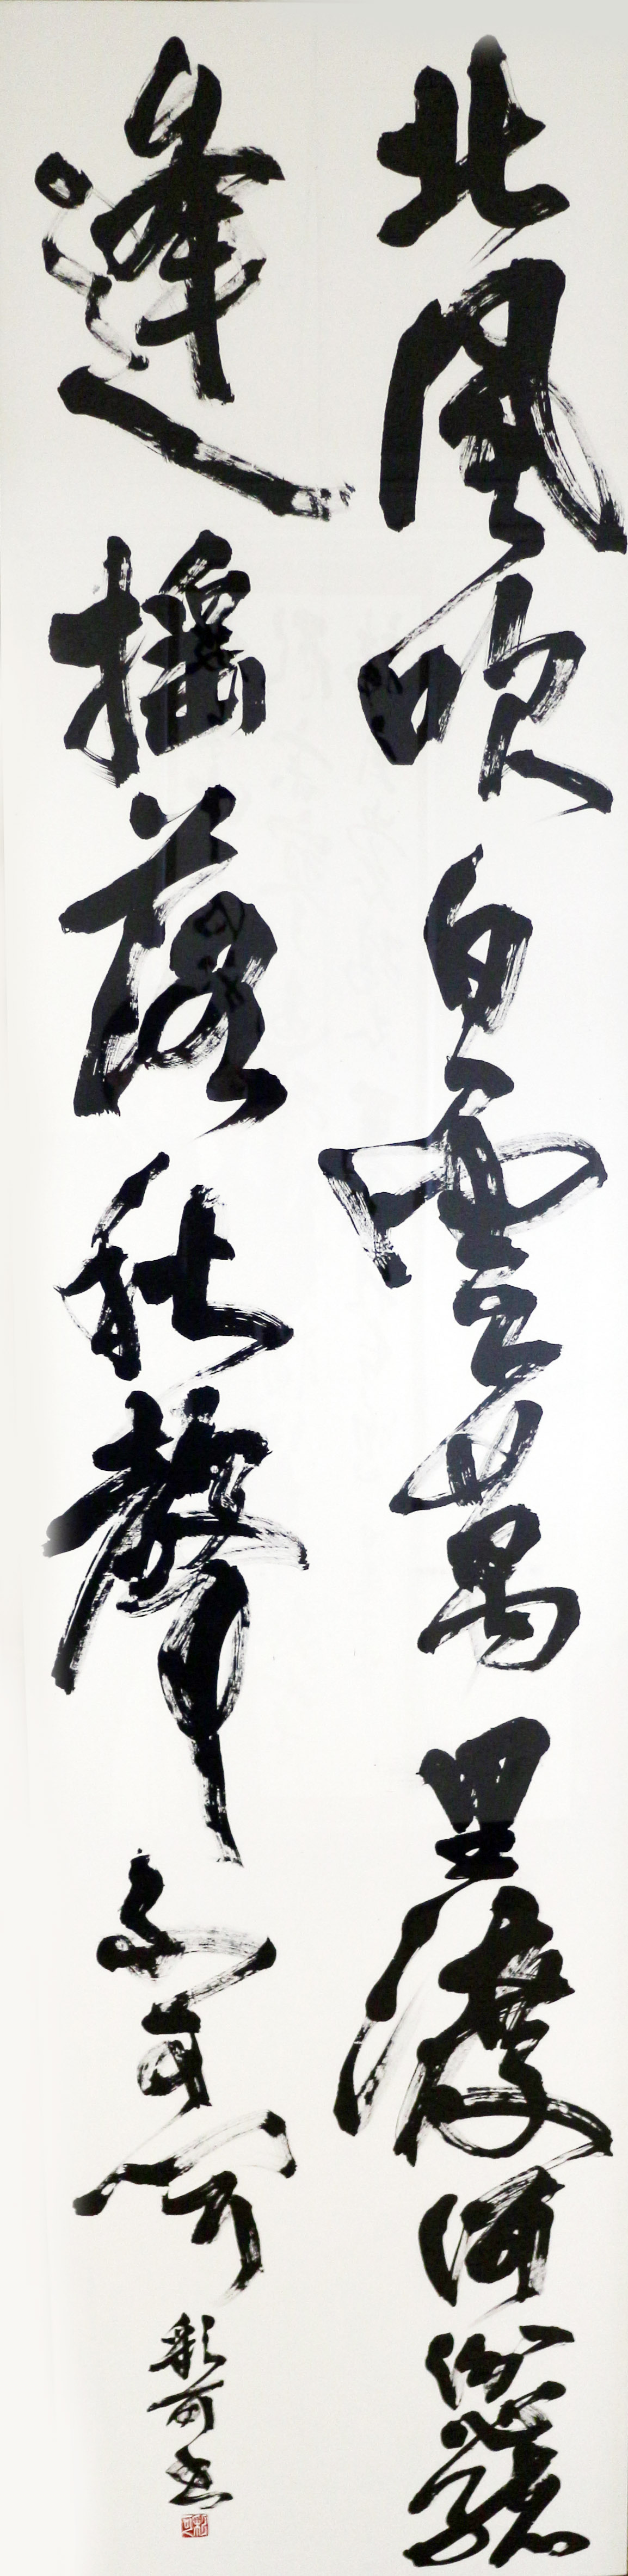 北風吹白雲萬里渡河汾心緒
逢搖落秋聲不可聞
書